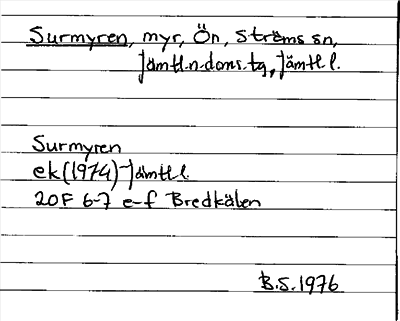 Surmyren, myr, Ön, Ströms sn,
Jämtl.n.doms.tg, Jämtl l.
Surmyren
ek(1974) Jämtl l.
20F 6-7 e-f Bredkälen
B.S. 1976